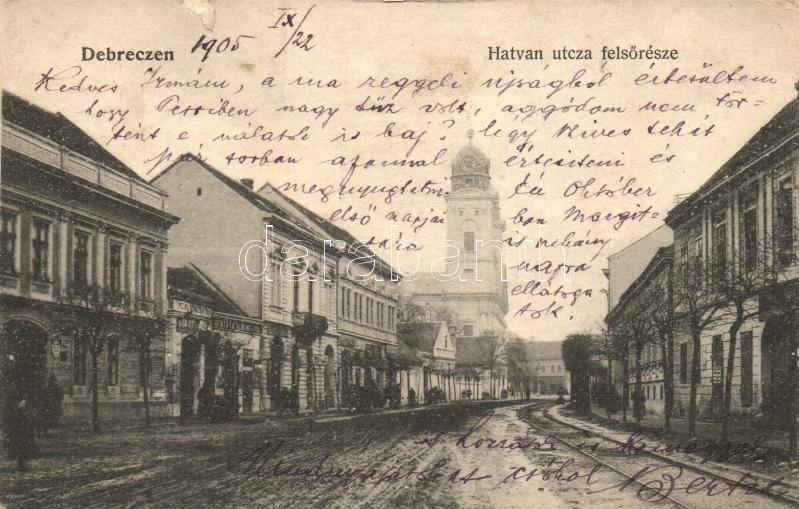 Debreczen 1905 IX/22
Hatvan utcza felsőrésze
Kedves Irmám, a ma reggeli újságból értesültem
hogy Pesten nagy tüz volt, aggódom nem tör-
tént e nálatok is baj? légy szives tehát
pár sorban azonnal értesiteni és
megnyugtatni. Én Október
első napjai ban Margit-
sára is néhány
napra
ellátoga
tok!
darabanth
Mindnyájatokat csókol Bertit